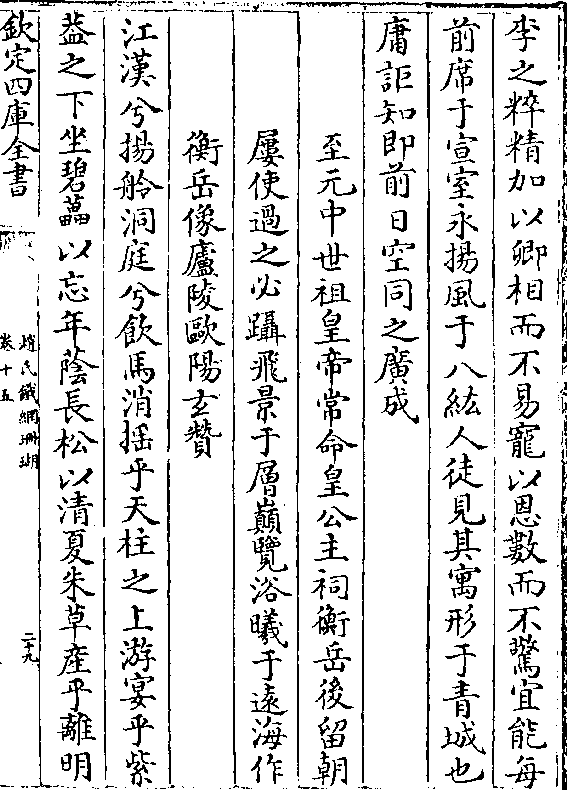 李之粹精加以卿相而不易寵以恩數而不驚宜能每
前席于宣室永揚風于八紘人徒見其寓形于青城也
庸詎知即前日空同之廣成
至元中世祖皇帝常命皇公主祠衡岳後留朝
屢使過之必躡飛景于層巔覽浴曦于遠海作
衡岳像廬陵歐陽玄贊
江漢兮揚舲洞庭兮飲馬消揺乎天柱之上游宴乎紫
葢之下坐碧藟以忘年蔭長松以清夏朱草産乎離明
欽定四庫全書
趙氏鐵網珊瑚
卷十五
二十九